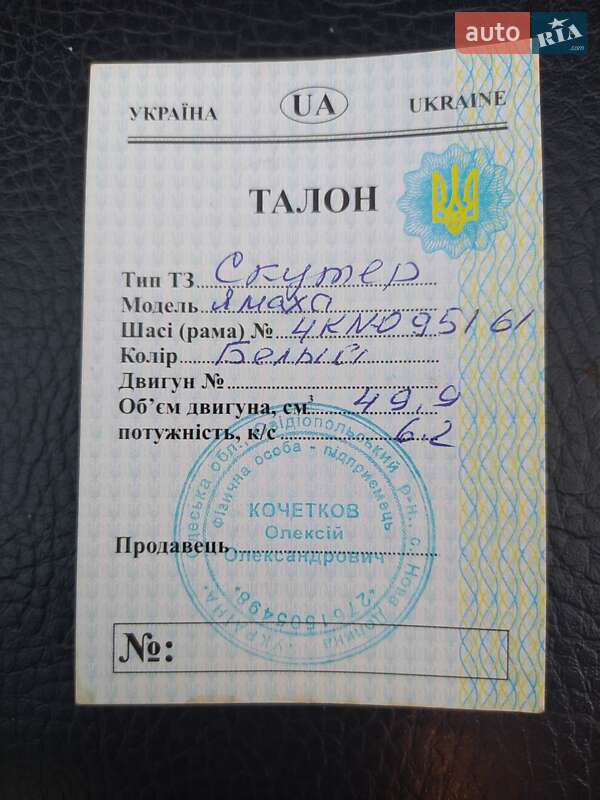 auto RIA.com
УКРАЇНА UA UKRAINE
ТАЛОН
Тип ТЗ Скутер
Модель Ямаха
Шасі (рама) № 4KN-095161
Колір Белый
Двигун №
Об’єм двигуна, см³ 49,9
потужність, к/с 6.2
Одеська обл., Овідіопольський р-н., с. Нова Долина
Фізична особа - підприємець
КОЧЕТКОВ
Олексій
Продавець Олександрович
УКРАЇНА
№: